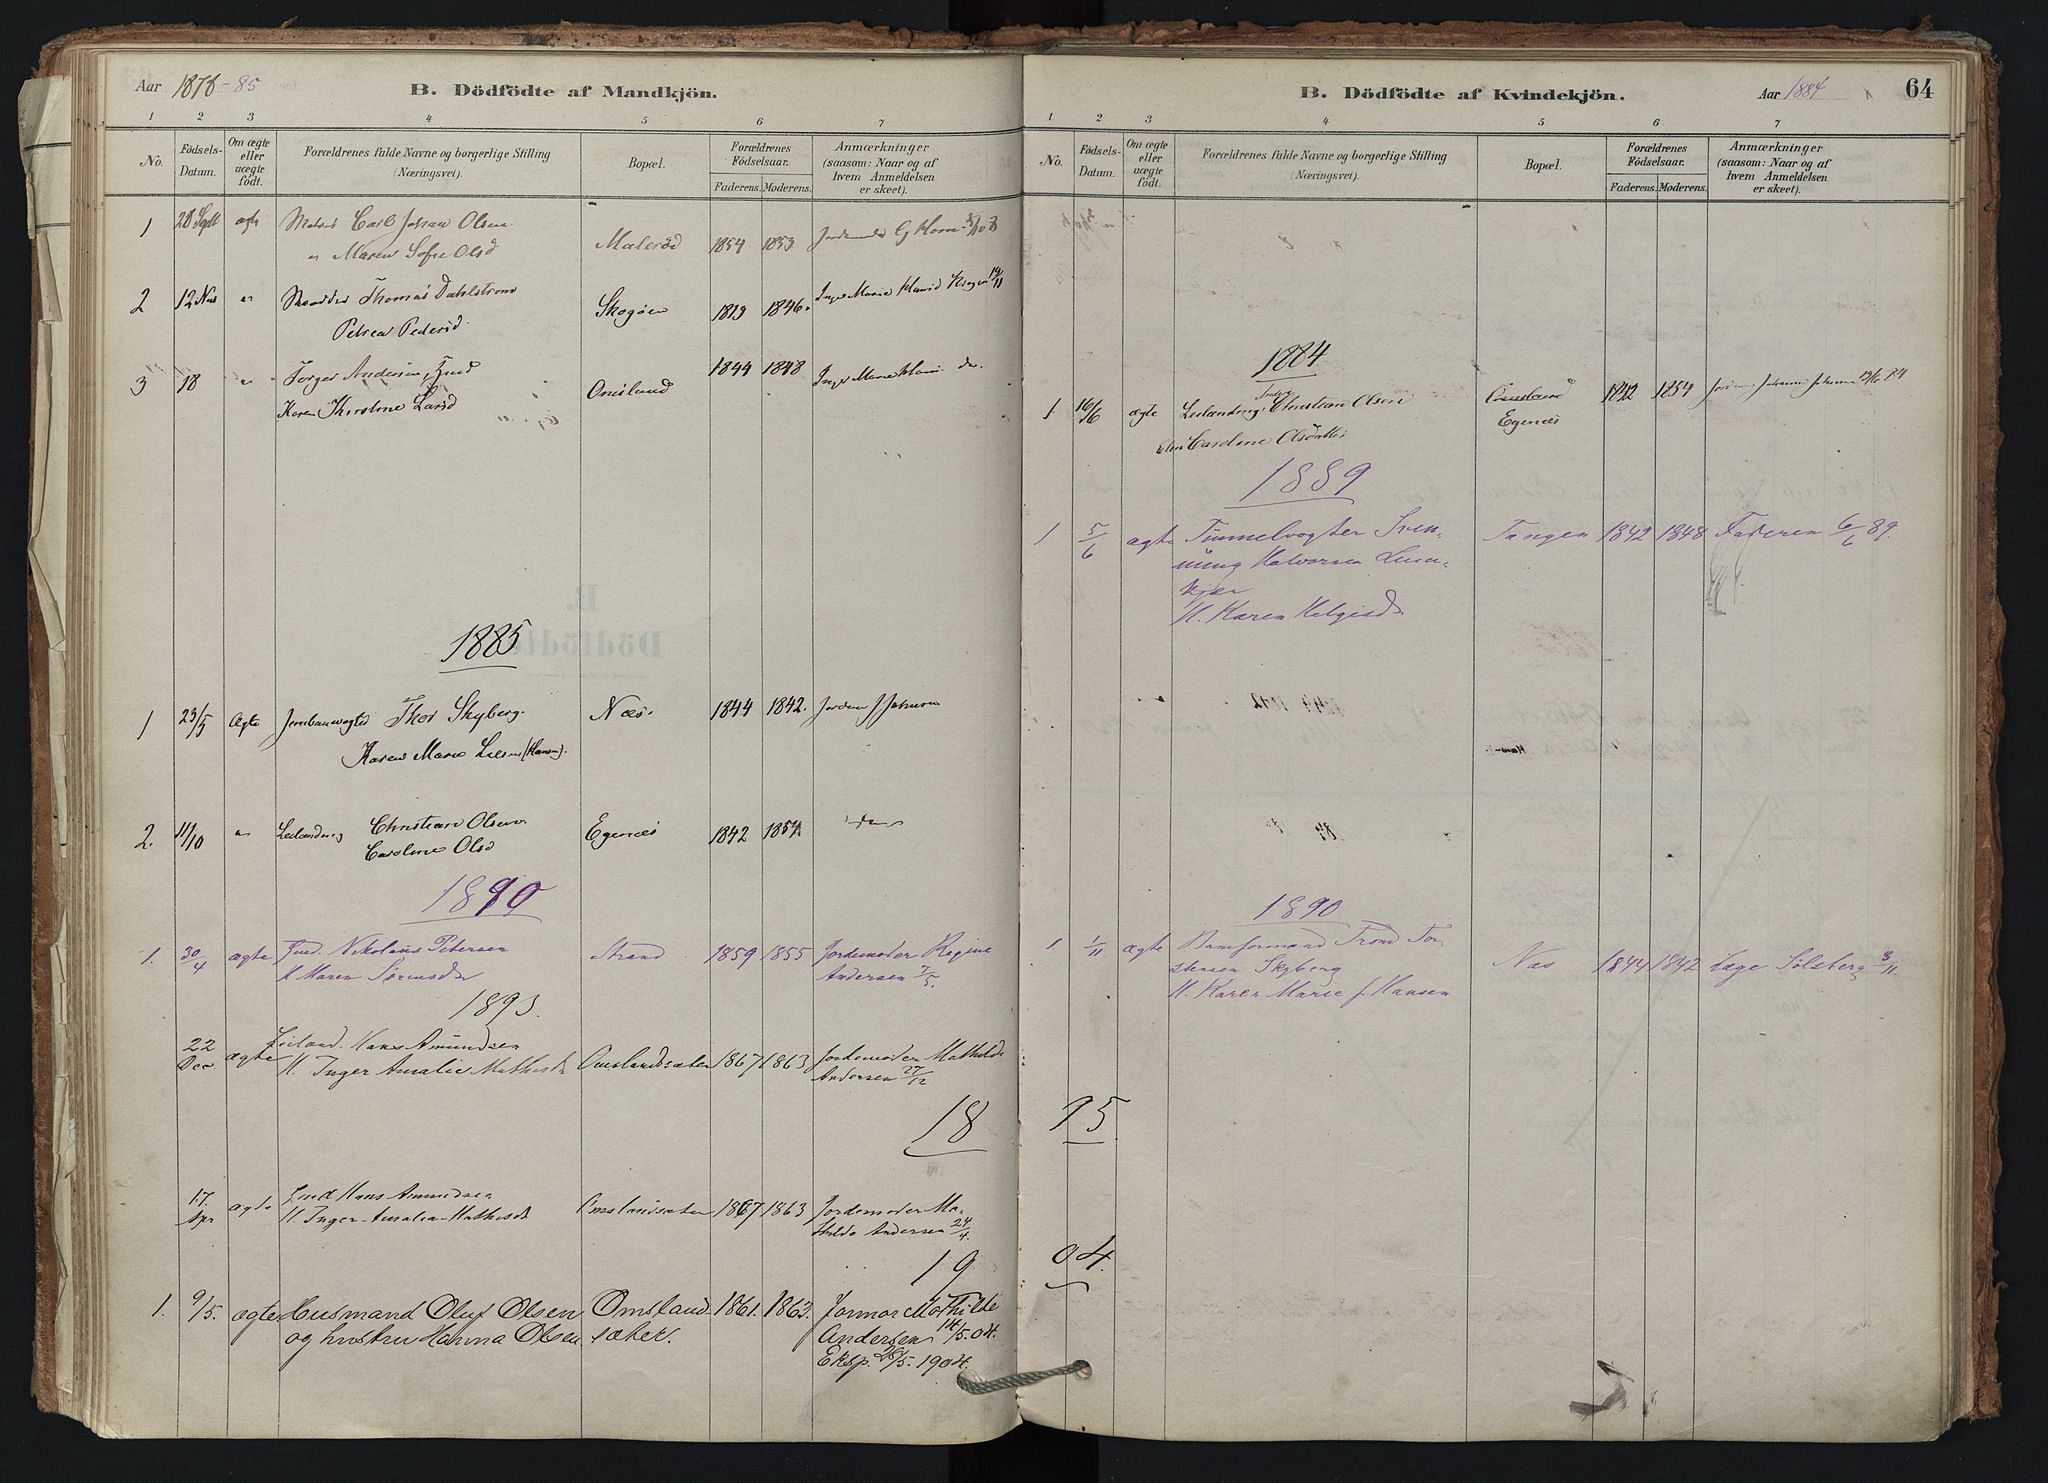 Aar 1878-85
B. Dödfödte af Mandkjön.
1 2 3 4 5 6 7
No.
Födsels-
Datum.
Om ægte
eller
uægte
födt.
Forældrenes fulde Navne og borgerlige Stilling
(Næringsvei).
Bopæl.
Forældrenes
Födselsaar.
Faderens. Moderens.
Anmærkninger
(saasom: Naar og af
hvem Anmeldelsen
er skeet).
1 28 Sept ægte Carl Johan Olsen
Maren Sofie Olsd
1854 1853
2 12 Nov " Thomas Dahlstrøm
Petrea Pedersd.
Skogen 1813 1846. Inger Marie 19/11
3 18 " Torger Andersen,
Karen Kirstine Larsd
Omsland 1844 1848 Inger Marie do.
1885
1 23/5 Ægte Thor Skyberg.
Karen Marie (Hansen).
Næs. 1844 1842. Jordem J Johnsen
2. 11/10 " Christian Olsen
Caroline Olsd
Egenæs 1842 1854
1890
1. 30/4 ægte Nikolaus Petersen
H Maren Sørensdr
Strand 1859 1855 Jordemoder Regine
Andersen 7/5.
1893.
22
Dec ægte Hans Amundsen
H. Inger Amalie Mathisdr
Omslandsæter 1867 1863 Jordemoder Mathilde
Andersen 27/12
18
17
Apr ægte Hans Amundsen
H. Inger Amalia Mathisdr
Omslandsæter 1867 1863 Jordemoder Ma-
thilde Andersen 24/4.
19
1. 9/5. ægte Husmand Oluf Olsen
og hustru Hanna Olsen
Omsland-
sæter. 1861. 1863. Jormor Mathilde
Andersen 14/5.04.
Eksp. 28/5. 1904.
B. Dödfödte af Kvindekjön.
Aar 1884
64
1 2 3 4 5 6 7
No.
Födsels-
Datum.
Om ægte
eller
uægte
födt.
Forældrenes fulde Navne og borgerlige Stilling
(Næringsvei).
Bopæl.
Forældrenes
Födselsaar.
Faderens. Moderens.
Anmærkninger
(saasom: Naar og af
hvem Anmeldelsen
er skeet).
1884.
1 16/6 ægte Christian Olsen
Caroline Olsdatter
Omsland
Egenæs
1842 1854
1889
1 5/6 ægte Tunnelvogter Sven-
nung Halvorsen
kjær
H. Karen Helgisdr
Tangen 1842 1848 Faderen 6/6 89.
1890
1 1/11 ægte Baneformand Trond Tor-
stensen Skyberg
H. Karen Marie f. Hansen
Næs 1844 1842 Læge Solberg 3/11
95
04.